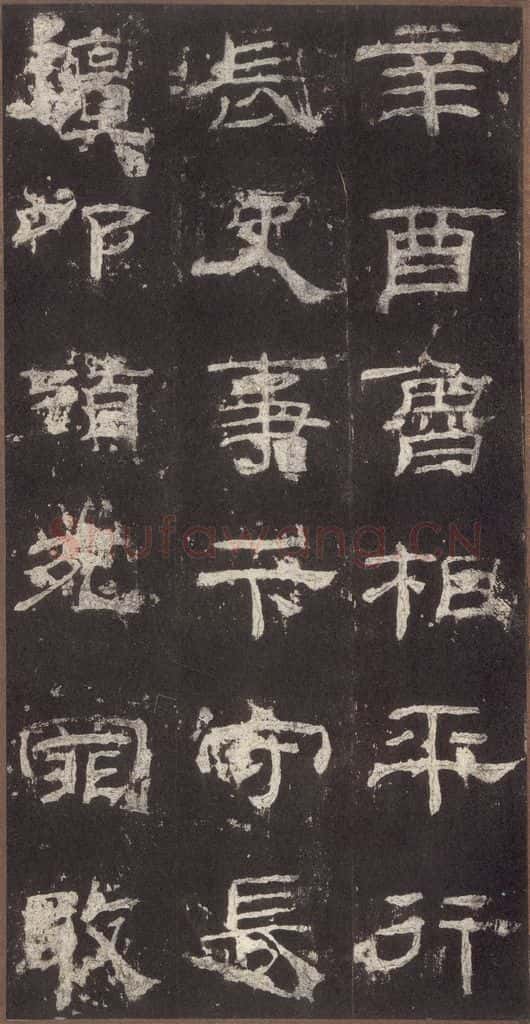 辛酉魯相平行
長史事卞守長
擅叩頭死罪敢
Shufawang.CN